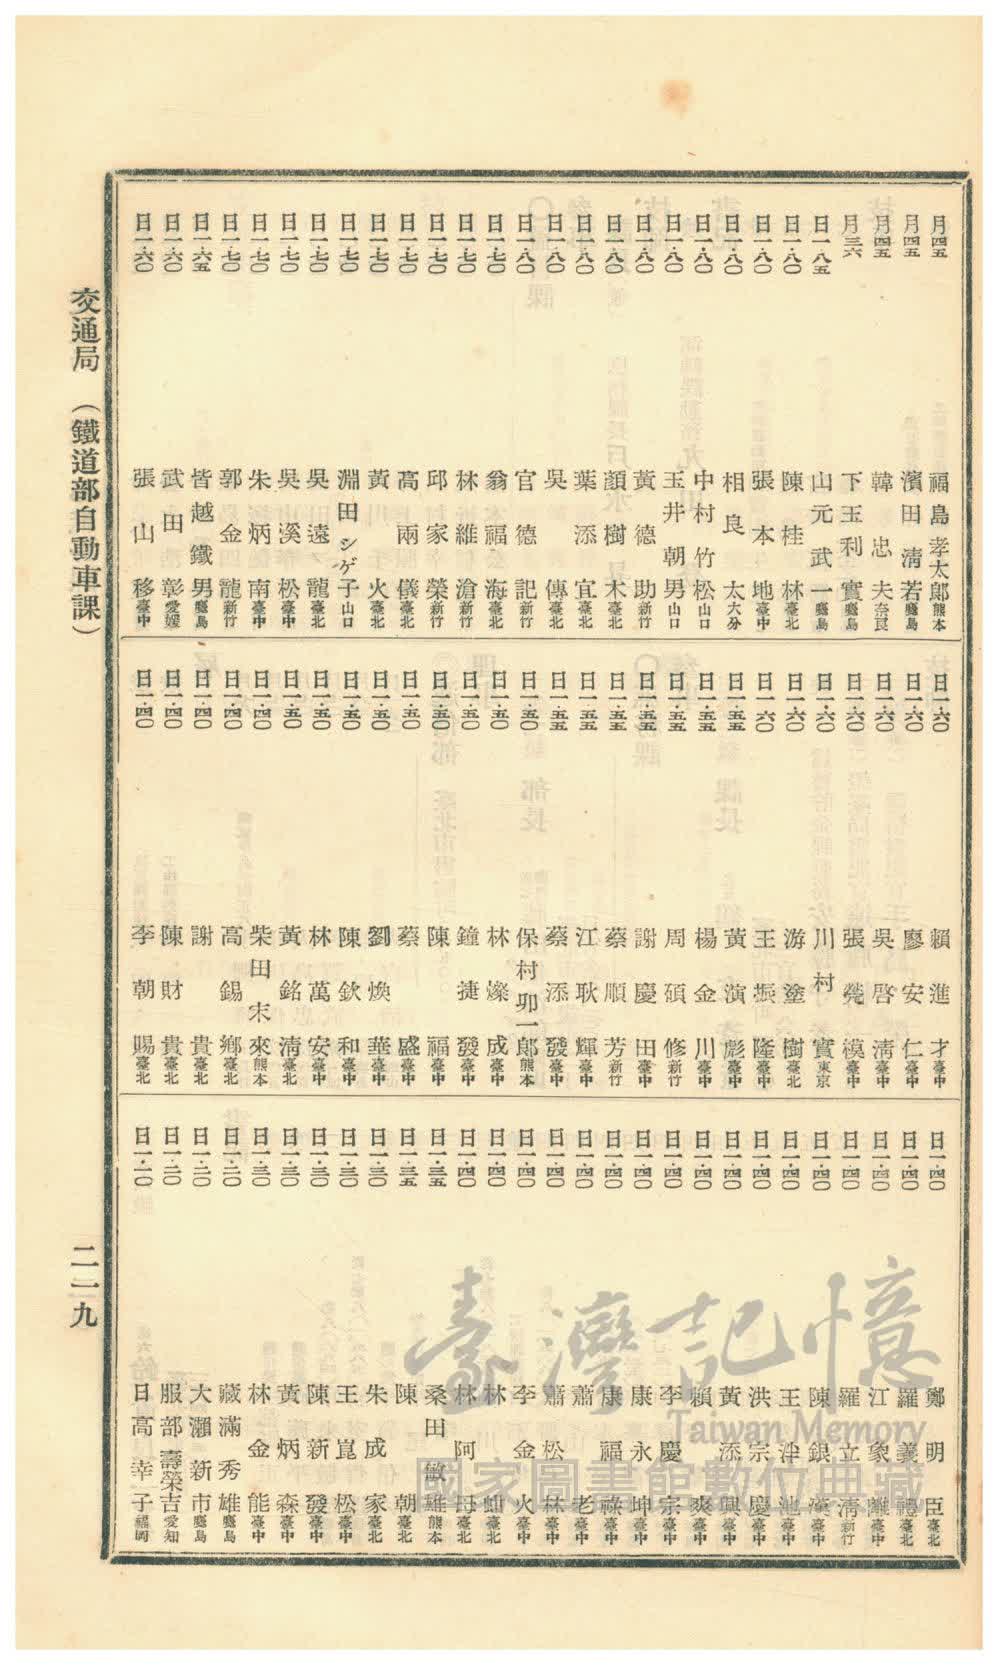 月四五 福島孝太郎 熊本
月四五 濱田淸若 鹿兒島
月四五 韓忠夫 奈良
月三六 下玉利實 鹿兒島
日一・八五 山元武一 鹿兒島
日一・八〇 陳桂林 臺北
日一・八〇 張本地 臺中
日一・八〇 相良太 大分
日一・八〇 中村竹松 山口
日一・八〇 玉井朝男 山口
日一・八〇 黃德助 新竹
日一・八〇 顏樹木 臺北
日一・八〇 葉添宜 臺北
日一・八〇 吳傳 臺北
日一・八〇 官德記 新竹
日一・七〇 翁福海 臺北
日一・七〇 林維滄 新竹
日一・七〇 邱家榮 新竹
日一・七〇 高兩儀 臺北
日一・七〇 黃川火 臺北
日一・七〇 淵田シゲ子 山口
日一・七〇 吳遠龍 臺北
日一・七〇 吳溪松 臺中
日一・七〇 朱炳南 臺中
日一・七〇 郭金龍 新竹
日一・六五 皆越鐵男 鹿兒島
日一・六〇 武田彰 愛媛
日一・六〇 張山移 臺中
日一・六〇 賴進才 臺中
日一・六〇 廖安仁 臺中
日一・六〇 吳啓淸 臺中
日一・六〇 張模 臺中
日一・六〇 川村實 東京
日一・六〇 游塗樹 臺北
日一・六〇 王振隆 臺中
日一・五五 黃演彪 臺中
日一・五五 楊金川 臺中
日一・五五 周碩修 新竹
日一・五五 謝慶田 臺中
日一・五五 蔡順芳 新竹
日一・五五 江耿輝 臺中
日一・五五 蔡添發 臺中
日一・五〇 保村卯一郎 熊本
日一・五〇 林燦成 臺中
日一・五〇 鐘捷發 臺中
日一・五〇 陳福 臺中
日一・五〇 蔡盛 臺中
日一・五〇 劉煥華 臺中
日一・五〇 陳欽和 臺中
日一・五〇 林萬安 臺中
日一・五〇 黃銘淸 臺北
日一・四〇 柴田末來 熊本
日一・四〇 高錫鄉 臺北
日一・四〇 謝貴 臺北
日一・四〇 陳財貴 臺北
日一・四〇 李朝賜 臺北
日一・四〇 鄭明臣 臺北
日一・四〇 羅義禮 臺北
日一・四〇 江象離 臺中
日一・四〇 羅立淸 新竹
日一・四〇 陳銀 臺中
日一・四〇 王池 臺中
日一・四〇 洪宗慶 臺中
日一・四〇 黃添興 臺中
日一・四〇 賴爽 臺中
日一・四〇 李慶宗 臺中
日一・四〇 康永坤 臺中
日一・四〇 康福祿 臺中
日一・四〇 蕭老 臺中
日一・四〇 蕭松林 臺中
日一・四〇 李金火 臺中
日一・四〇 林仙 臺北
日一・四〇 林阿母 臺北
日一・三五 桑田敏雄 熊本
日一・三五 陳朝 臺中
日一・三〇 朱成家 臺北
日一・三〇 王崑松 臺中
日一・三〇 陳新發 臺中
日一・三〇 黃炳森 臺中
日一・三〇 林金能 臺中
日一・二〇 藏滿秀雄 鹿兒島
日一・二〇 大瀨新市 鹿兒島
日一・二〇 服部壽榮吉 愛知
日一・一〇 日高幸子 福岡
交通局 （鐵道部自動車課）
二二九
臺灣記憶
Taiwan Memory
國家圖書館數位典藏